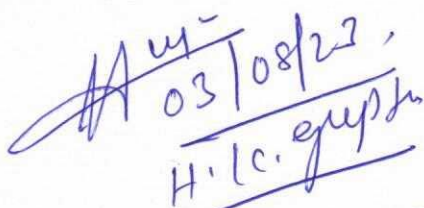 03/08/23.
H.K. Gupta